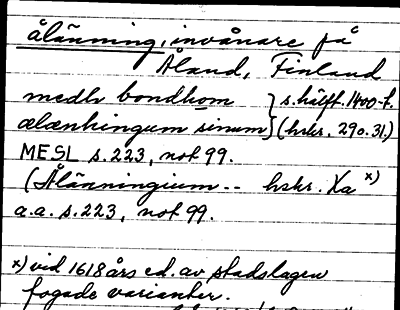 ålänning, invånare på
Åland, Finland
medh bondhom } s.hälft. 1400-t.
ælænhingum sinum } (hskr. 290.31.)
MESL s.223, not 99.
(Ålänningium -- hskr. Xa x)
a.a. s.223, not 99.
x) vid 1618 års ed. av stadslagen
fogade varianter.